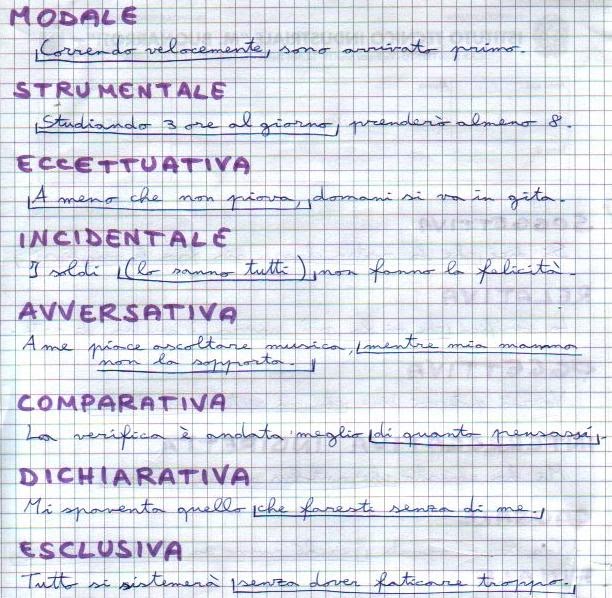 MODALE
Correndo velocemente, sono arrivato primo.
STRUMENTALE
Studiando 3 ore al giorno, prenderò almeno 8.
ECCETTUATIVA
A meno che non piova, domani si va in gita.
INCIDENTALE
I soldi (lo sanno tutti) non fanno la felicità.
AVVERSATIVA
A me piace ascoltare musica, mentre mia mamma
non la sopporta.
COMPARATIVA
La verifica è andata meglio di quanto pensassi.
DICHIARATIVA
Mi spaventa quello che faresti senza di me.
ESCLUSIVA
Tutto si sistemerà senza dover faticare troppo.